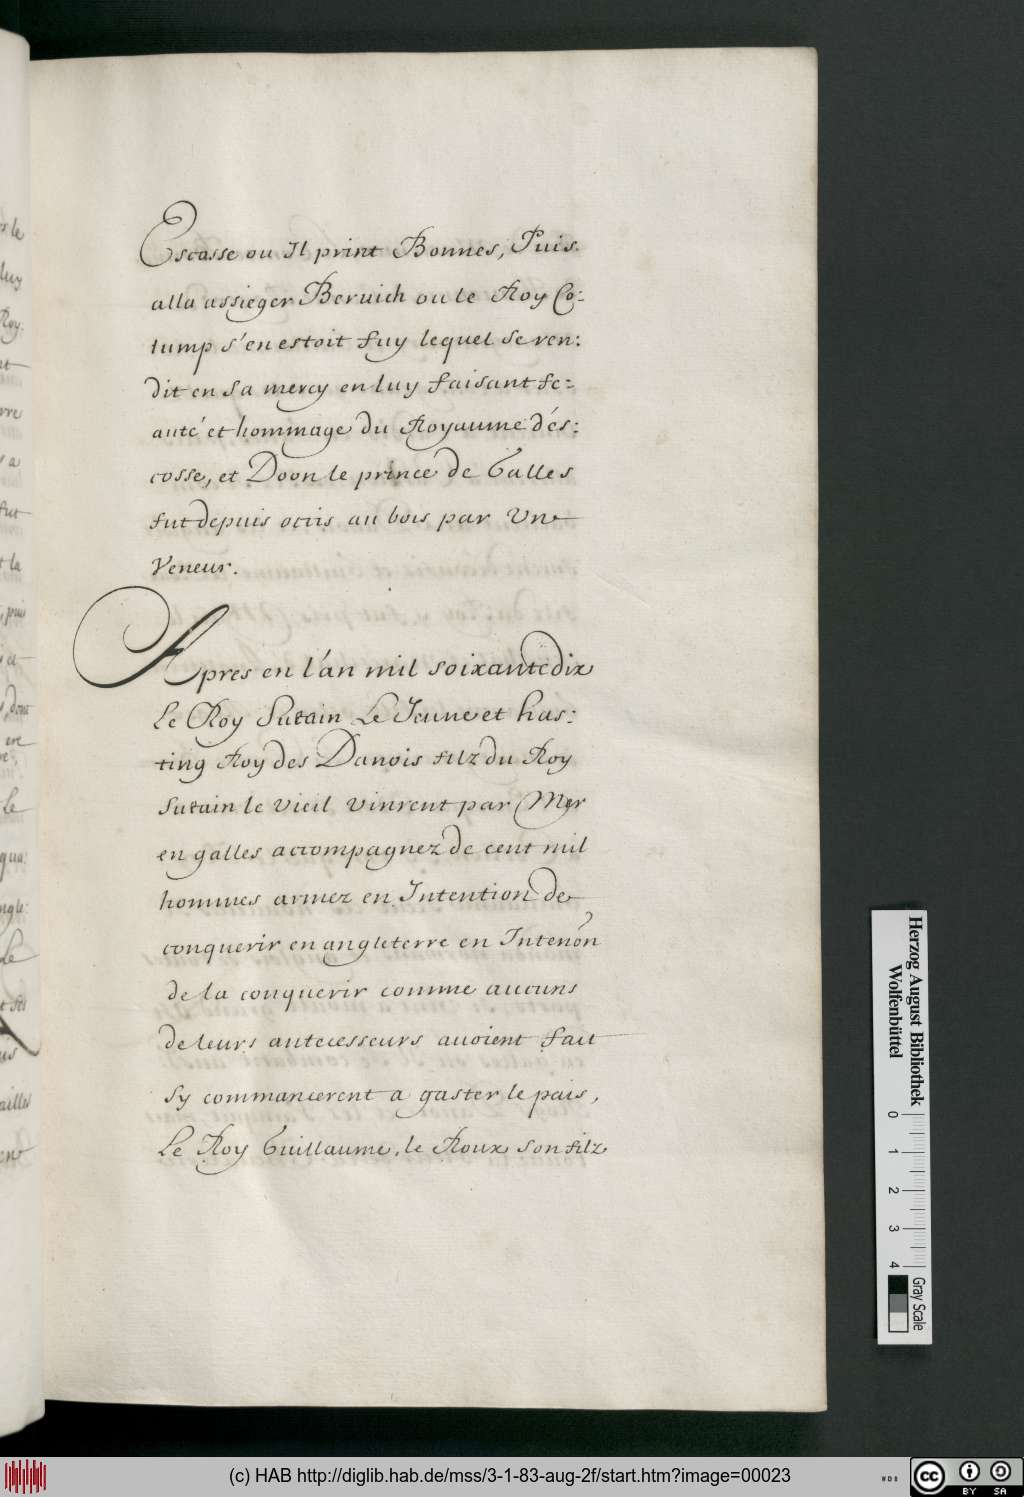 Escosse ou Il print Bonnes, Puis
alla assieger Beruich ou le Roy Co-
lump s'en estoit fuy lequel se ren:
dit en sa mercy en luy faisant fe-
auté et hommage du Royaume d'és:
cosse, et Doon le prince de Galles
fut depuis occis au bois par Vn
Veneur.
Apres en l'an mil soixante dix
Le Roy Sutain Le Jeune et has:
ting Roy des Danois filz du Roy
Sutain le vieil vinrent par Mer
en galles accompagnez de cent mil
hommes armez en Intention de
conquerir en angleterre en Intenõn
de la conquerir comme aucuns
de leurs antecesseurs auoient fait
sy commancerent a gaster le pais,
Le Roy Guillaume, le Roux son filz
Herzog August Bibliothek
Wolfenbüttel
0 1 2 3 4
Gray Scale
(c) HAB http://diglib.hab.de/mss/3-1-83-aug-2f/start.htm?image=00023
cc BY SA